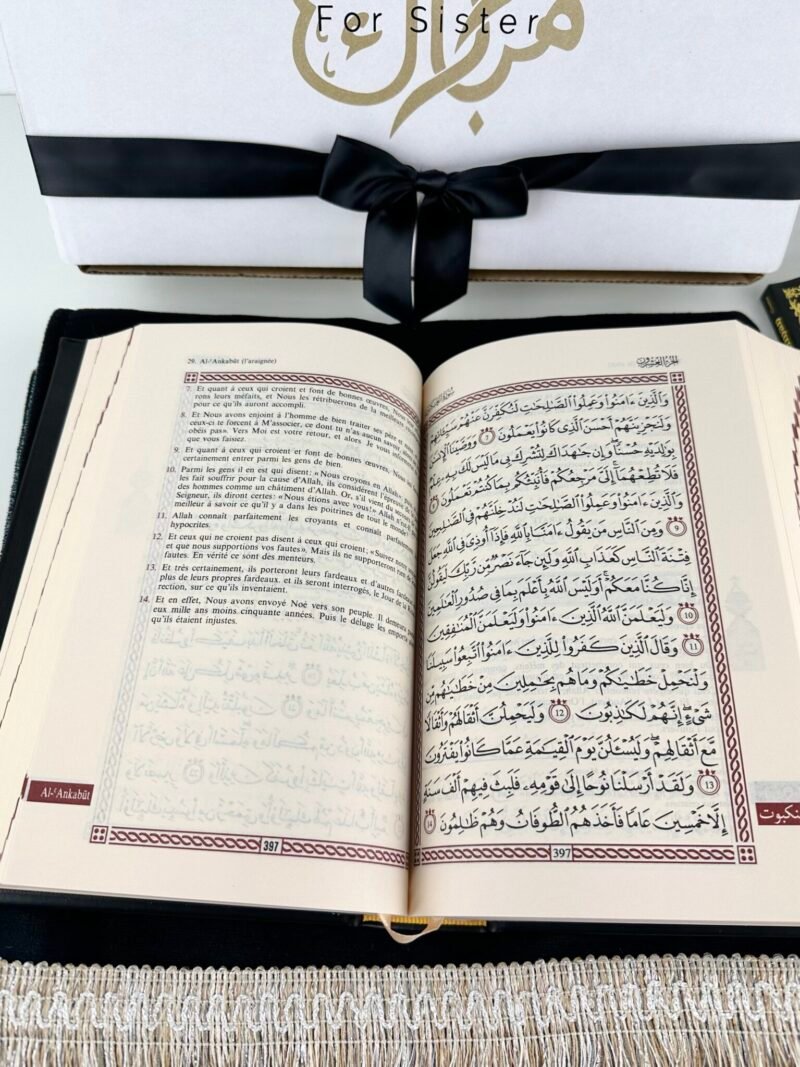 مبارك
For Sister
29. Al-ʿAnkabūt (l'araignée)
7. Et quant à ceux qui croient et font de bonnes œuvres, Nous
rons leurs méfaits, et Nous les rétribuerons de la meilleure
pour ce qu'ils auront accompli.
8. Et Nous avons enjoint à l'homme de bien traiter ses père et
ceux-ci te forcent à M'associer, ce dont tu n'as aucun savoir, alors
obéis pas». Vers Moi est votre retour, et alors Je vous
que vous faisiez.
9. Et quant à ceux qui croient et font de bonnes œuvres, Nous les
certainement entrer parmi les gens de bien.
10. Parmi les gens il en est qui disent: «Nous croyons en Allah»;
les fait souffrir pour la cause d'Allah, ils considèrent l'épreuve de
des hommes comme un châtiment d'Allah. Or, s'il vient du
Seigneur, ils diront certes: «Nous étions avec vous!» Allah n'est-Il
meilleur à savoir ce qu'il y a dans les poitrines de tout le monde?
11. Allah connaît parfaitement les croyants et connaît parfaitement
hypocrites.
12. Et ceux qui ne croient pas disent à ceux qui croient: «Suivez notre
et que nous supportions vos fautes». Mais ils ne supporteront rien de
fautes. En vérité ce sont des menteurs.
13. Et très certainement, ils porteront leurs fardeaux et d'autres fardeaux
plus de leurs propres fardeaux. et ils seront interrogés, le Jour de la
rection, sur ce qu'ils inventaient.
14. Et en effet, Nous avons envoyé Noé vers son peuple. Il demeura
eux mille ans moins cinquante années. Puis le déluge les emporta
qu'ils étaient injustes.
Al-ʿAnkabūt
397
الجزء العشرون
وَٱلَّذِينَ ءَامَنُوا۟ وَعَمِلُوا۟ ٱلصَّـٰلِحَـٰتِ لَنُكَفِّرَنَّ عَنْهُمْ سَيِّـَٔاتِهِمْ
وَلَنَجْزِيَنَّهُمْ أَحْسَنَ ٱلَّذِى كَانُوا۟ يَعْمَلُونَ ٧ وَوَصَّيْنَا ٱلْإِنسَـٰنَ
بِوَٰلِدَيْهِ حُسْنًا وَإِن جَـٰهَدَاكَ لِتُشْرِكَ بِى مَا لَيْسَ لَكَ بِهِۦ عِلْمٌ
فَلَا تُطِعْهُمَآ إِلَىَّ مَرْجِعُكُمْ فَأُنَبِّئُكُم بِمَا كُنتُمْ تَعْمَلُونَ ٨
وَٱلَّذِينَ ءَامَنُوا۟ وَعَمِلُوا۟ ٱلصَّـٰلِحَـٰتِ لَنُدْخِلَنَّهُمْ فِى ٱلصَّـٰلِحِينَ
٩ وَمِنَ ٱلنَّاسِ مَن يَقُولُ ءَامَنَّا بِٱللَّهِ فَإِذَآ أُوذِىَ فِى ٱللَّهِ جَعَلَ
فِتْنَةَ ٱلنَّاسِ كَعَذَابِ ٱللَّهِ وَلَئِن جَآءَ نَصْرٌ مِّن رَّبِّكَ لَيَقُولُنَّ
إِنَّا كُنَّا مَعَكُمْ أَوَلَيْسَ ٱللَّهُ بِأَعْلَمَ بِمَا فِى صُدُورِ ٱلْعَـٰلَمِينَ
10 وَلَيَعْلَمَنَّ ٱللَّهُ ٱلَّذِينَ ءَامَنُوا۟ وَلَيَعْلَمَنَّ ٱلْمُنَـٰفِقِينَ
11 وَقَالَ ٱلَّذِينَ كَفَرُوا۟ لِلَّذِينَ ءَامَنُوا۟ ٱتَّبِعُوا۟ سَبِيلَنَا
وَلْنَحْمِلْ خَطَـٰيَـٰكُمْ وَمَا هُم بِحَـٰمِلِينَ مِنْ خَطَـٰيَـٰهُم مِّن
شَىْءٍ إِنَّهُمْ لَكَـٰذِبُونَ 12 وَلَيَحْمِلُنَّ أَثْقَالَهُمْ وَأَثْقَالًا
مَّعَ أَثْقَالِهِمْ وَلَيُسْـَٔلُنَّ يَوْمَ ٱلْقِيَـٰمَةِ عَمَّا كَانُوا۟ يَفْتَرُونَ
13 وَلَقَدْ أَرْسَلْنَا نُوحًا إِلَىٰ قَوْمِهِۦ فَلَبِثَ فِيهِمْ أَلْفَ سَنَةٍ
إِلَّا خَمْسِينَ عَامًا فَأَخَذَهُمُ ٱلطُّوفَانُ وَهُمْ ظَـٰلِمُونَ 14
397